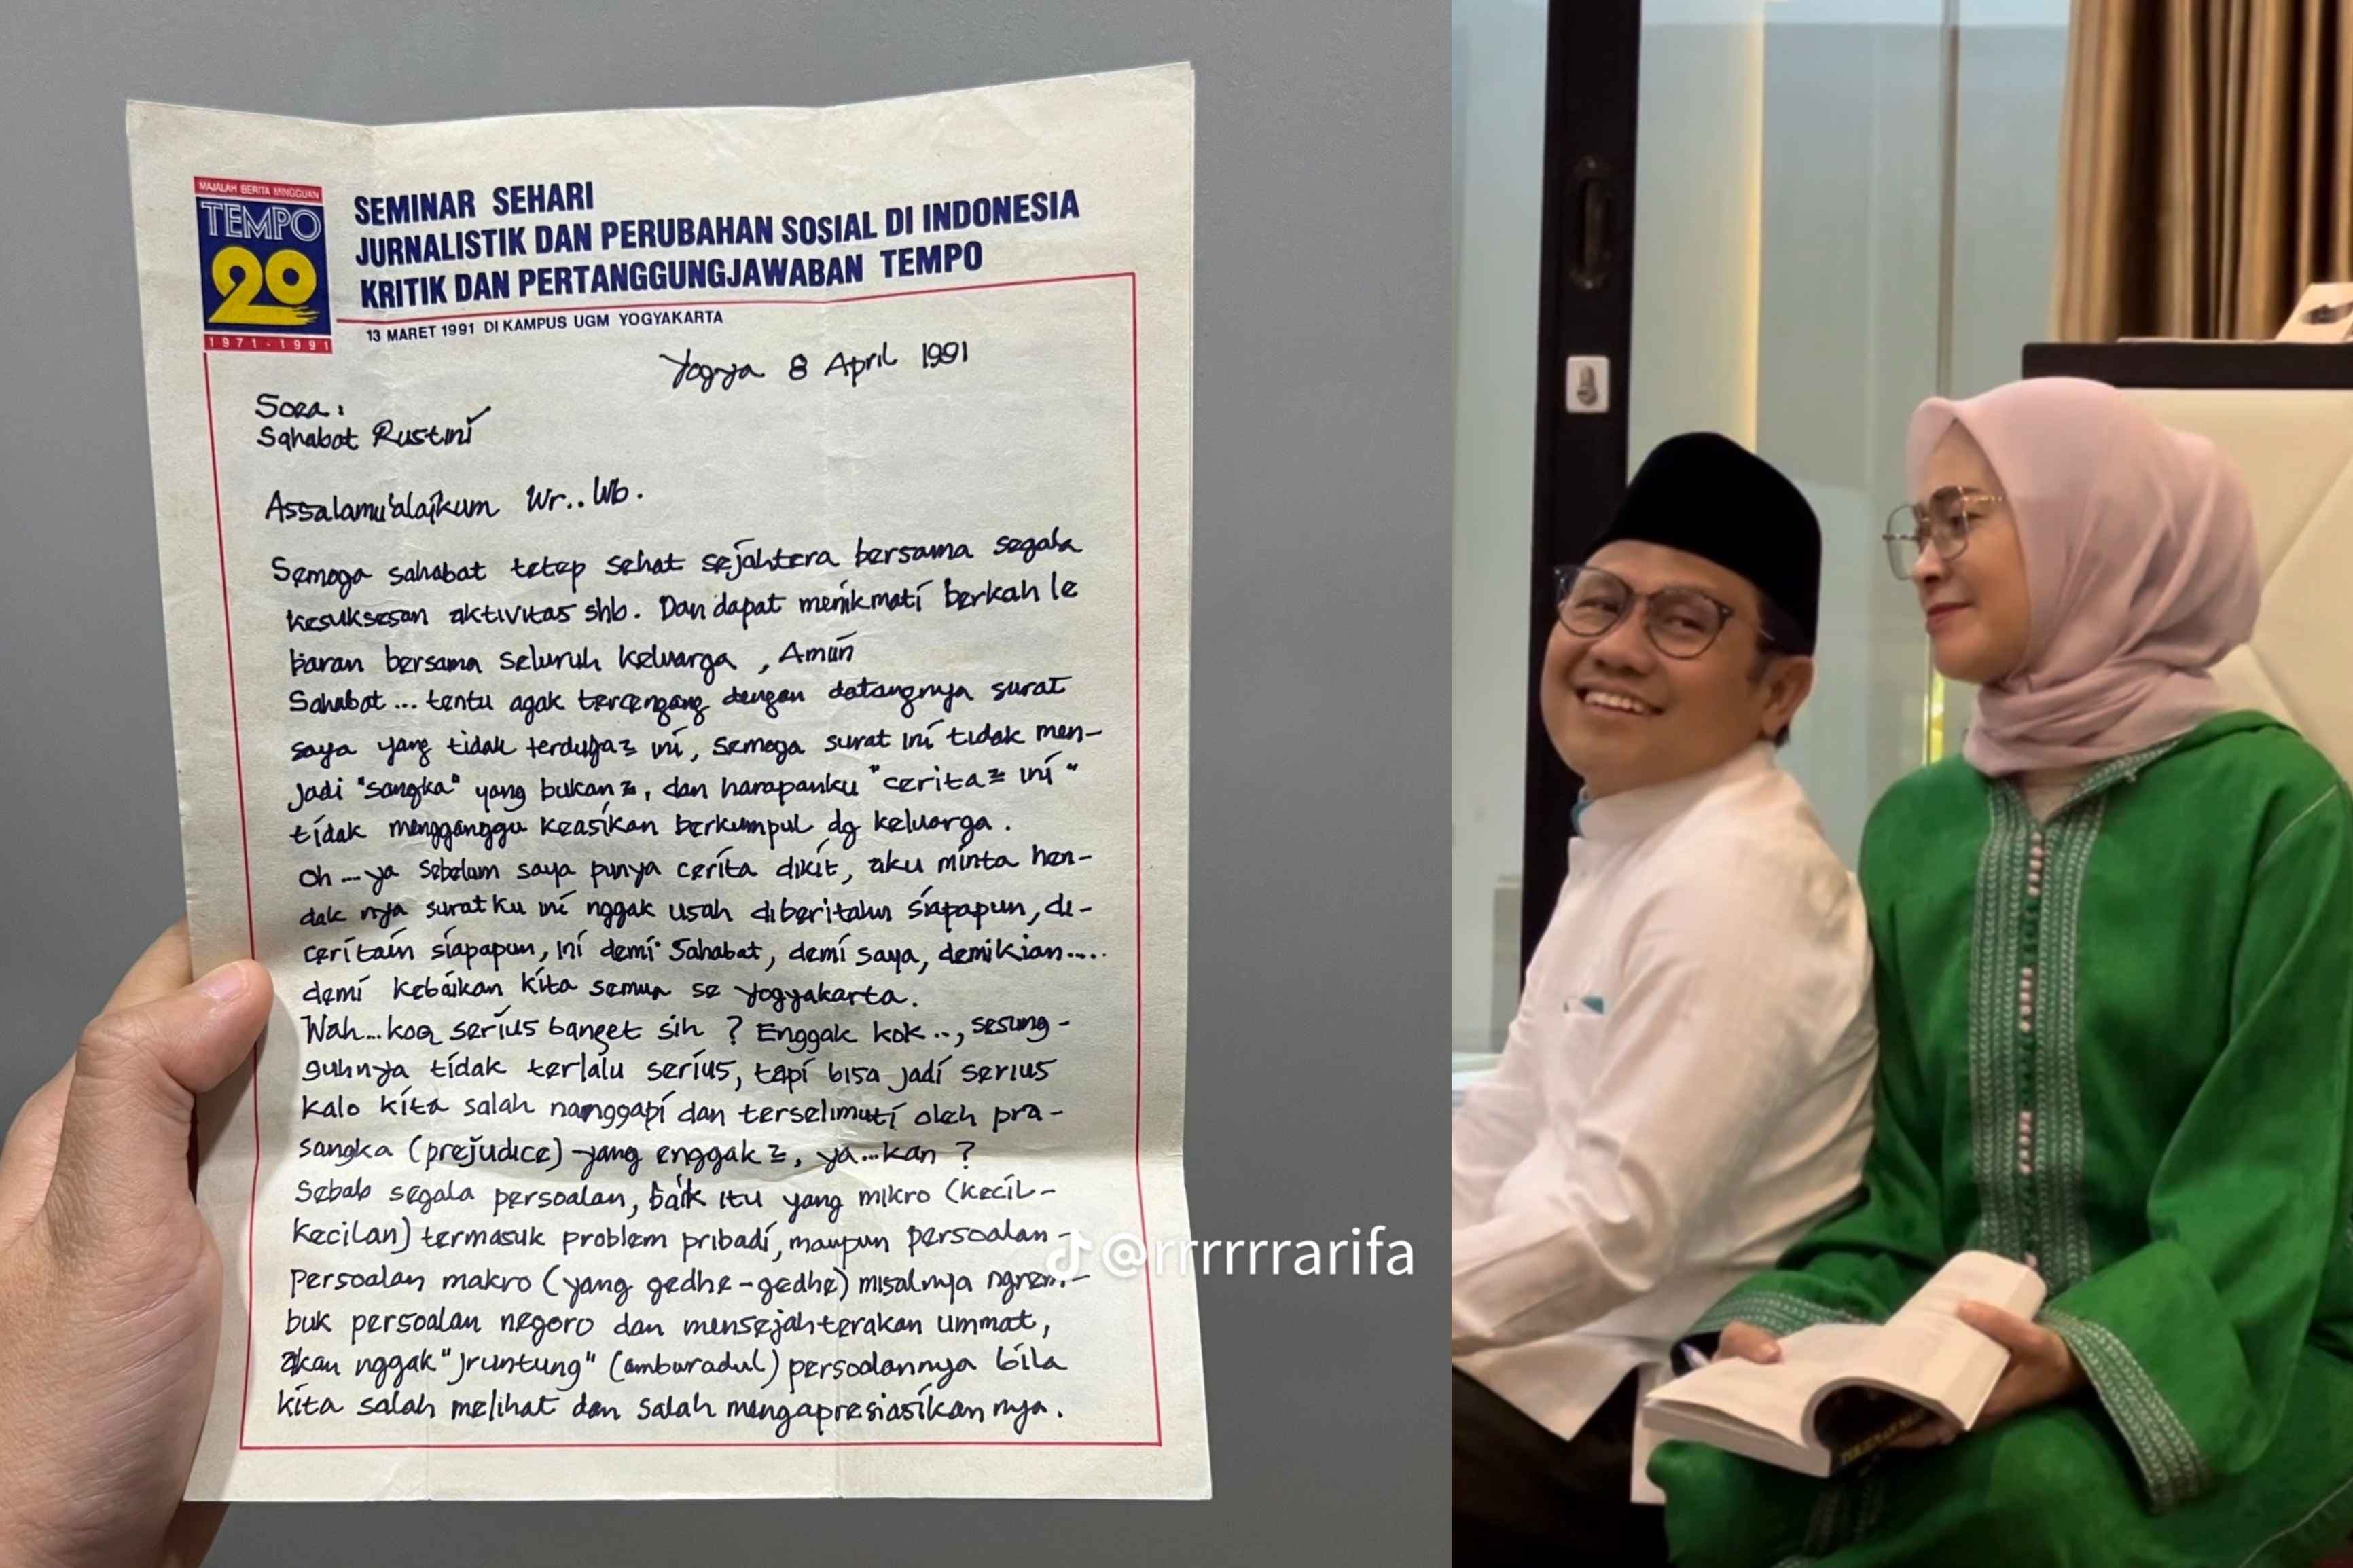 MAJALAH BERITA MINGGUAN
TEMPO
20
1971-1991
SEMINAR SEHARI
JURNALISTIK DAN PERUBAHAN SOSIAL DI INDONESIA
KRITIK DAN PERTANGGUNGJAWABAN TEMPO
13 MARET 1991 DI KAMPUS UGM YOGYAKARTA
Yogya 8 April 1991
Sahabat Rustini
Assalamu'alaikum Wr.. Wb.
Semoga sahabat tetap sehat sejahtera bersama segala
kesuksesan aktivitas shb. Dan dapat menikmati berkah le
baran bersama seluruh keluarga, Amiin
Sahabat... tentu agak tercengang dengan datangnya surat
saya yang tidak terduga2 ini, semoga surat ini tidak men-
jadi "sangka" yang bukan2, dan harapanku "cerita2 ini"
tidak mengganggu keasikan berkumpul dg keluarga.
oh...ya sebelum saya punya cerita dikit, aku minta hen-
dak nya suratku ini nggak usah diberitahu siapapun, di-
ceritain siapapun, ini demi Sahabat, demi saya, demikian.....
demi kebaikan kita semua se Yogyakarta.
Wah...koq serius banget sih ? Enggak kok..., sesung-
guhnya tidak terlalu serius, tapi bisa jadi serius
kalo kita salah nanggapi dan terselimuti oleh pra-
sangka (prejudice) yang enggak2, ya...kan ?
Sebab segala persoalan, baik itu yang mikro (kecil-
kecilan) termasuk problem pribadi, maupun persoalan-
persoalan makro (yang gedhe-gedhe) misalnya ngrem-
buk persoalan negoro dan mensejahterakan ummat,
akan nggak "jruntung" (amburadul) persoalannya bila
kita salah melihat dan salah mengapresiasikannya.
@rrrrrrarifa